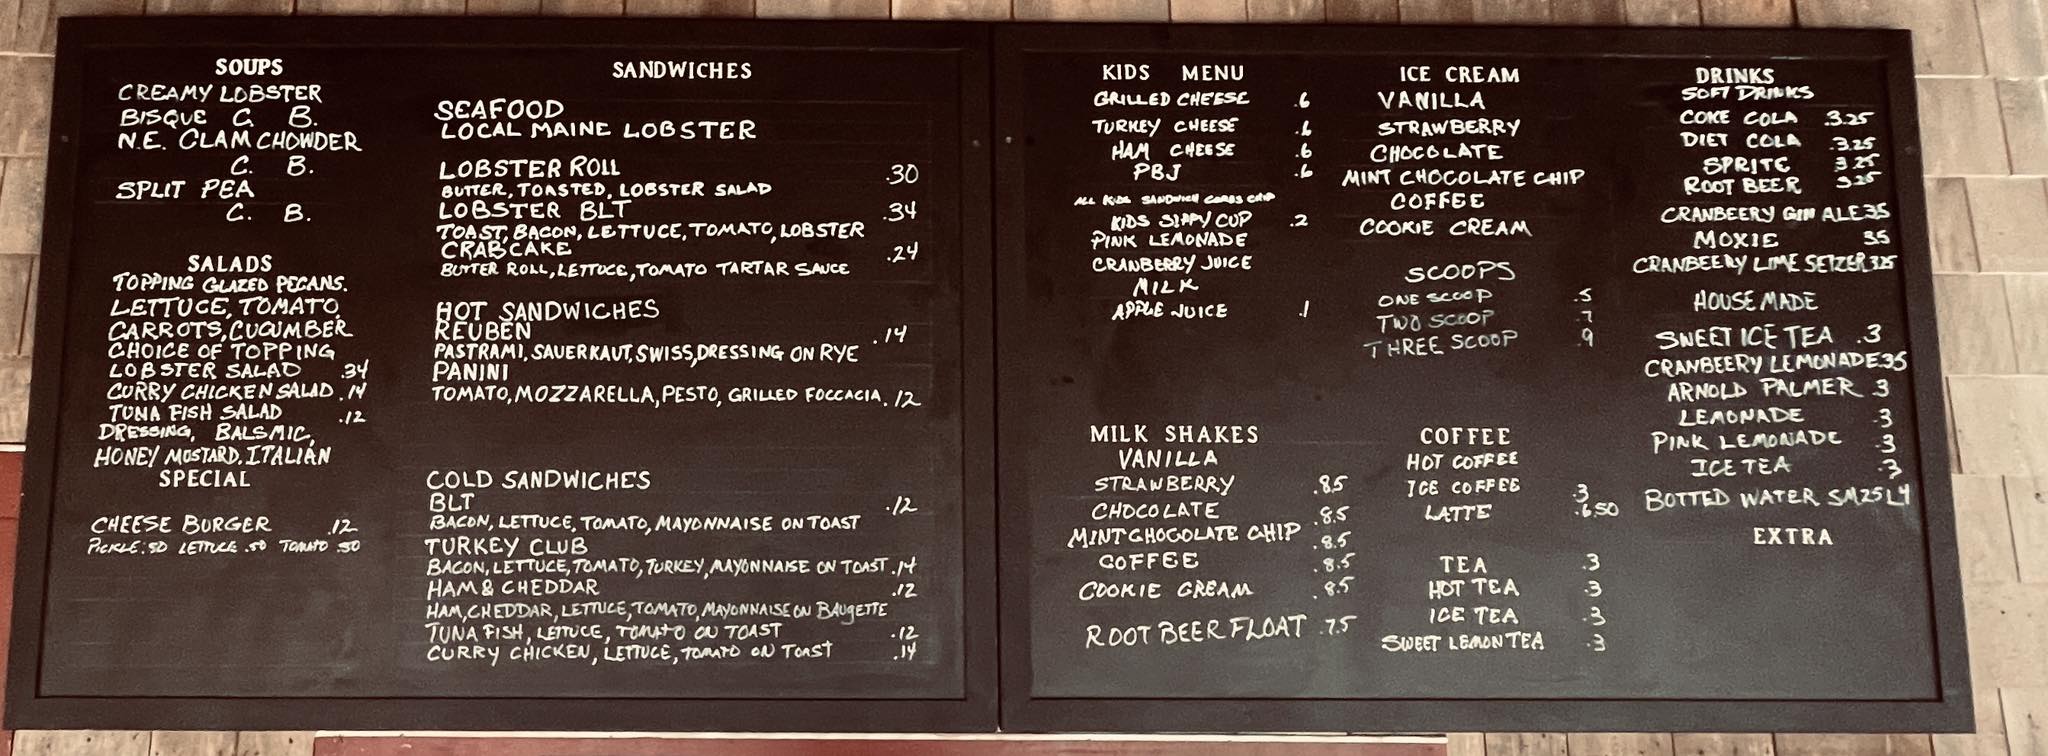 SOUPS
CREAMY LOBSTER
BISQUE C. B.
N.E. CLAM CHOWDER
C. B.
SPLIT PEA
C. B.
SALADS
TOPPING GLAZED PECANS.
LETTUCE, TOMATO,
CARROTS, CUCUMBER
CHOICE OF TOPPING
LOBSTER SALAD .34
CURRY CHICKEN SALAD .14
TUNA FISH SALAD .12
DRESSING, BALSMIC,
HONEY MUSTARD, ITALIAN
SPECIAL
CHEESE BURGER .12
PICKLE .50 LETTUCE .50 TOMATO .50
SANDWICHES
SEAFOOD
LOCAL MAINE LOBSTER
LOBSTER ROLL .30
BUTTER, TOASTED, LOBSTER SALAD
LOBSTER BLT .34
TOAST, BACON, LETTUCE, TOMATO, LOBSTER
CRAB CAKE .24
BUTTER ROLL, LETTUCE, TOMATO TARTAR SAUCE
HOT SANDWICHES
REUBEN .14
PASTRAMI, SAUERKAUT, SWISS, DRESSING ON RYE
PANINI
TOMATO, MOZZARELLA, PESTO, GRILLED FOCCACIA .12
COLD SANDWICHES
BLT .12
BACON, LETTUCE, TOMATO, MAYONNAISE ON TOAST
TURKEY CLUB
BACON, LETTUCE, TOMATO, TURKEY, MAYONNAISE ON TOAST .14
HAM & CHEDDAR .12
HAM, CHEDDAR, LETTUCE, TOMATO, MAYONNAISE ON BAUGETTE
TUNA FISH, LETTUCE, TOMATO ON TOAST .12
CURRY CHICKEN, LETTUCE, TOMATO ON TOAST .14
KIDS MENU
GRILLED CHEESE .6
TURKEY CHEESE .6
HAM CHEESE .6
PBJ .6
ALL KIDS SANDWICH COMES CHIP
KIDS SIPPY CUP .2
PINK LEMONADE
CRANBERRY JUICE
MILK
APPLE JUICE .1
MILK SHAKES
VANILLA
STRAWBERRY .8.5
CHOCOLATE .8.5
MINT CHOCOLATE CHIP .8.5
COFFEE .8.5
COOKIE CREAM .8.5
ROOT BEER FLOAT .7.5
ICE CREAM
VANILLA
STRAWBERRY
CHOCOLATE
MINT CHOCOLATE CHIP
COFFEE
COOKIE CREAM
SCOOPS
ONE SCOOP .5
TWO SCOOP .7
THREE SCOOP .9
COFFEE
HOT COFFEE
ICE COFFEE .3
LATTE .6.50
TEA .3
HOT TEA .3
ICE TEA .3
SWEET LEMON TEA .3
DRINKS
SOFT DRINKS
COKE COLA .3.25
DIET COLA .3.25
SPRITE 3.25
ROOT BEER 3.25
CRANBEERY GIN ALE 35
MOXIE 35
CRANBEERY LIME SETZER 325
HOUSE MADE
SWEET ICE TEA .3
CRANBEERY LEMONADE 35
ARNOLD PALMER .3
LEMONADE .3
PINK LEMONADE .3
ICE TEA .3
BOTTED WATER SM 25 L4
EXTRA